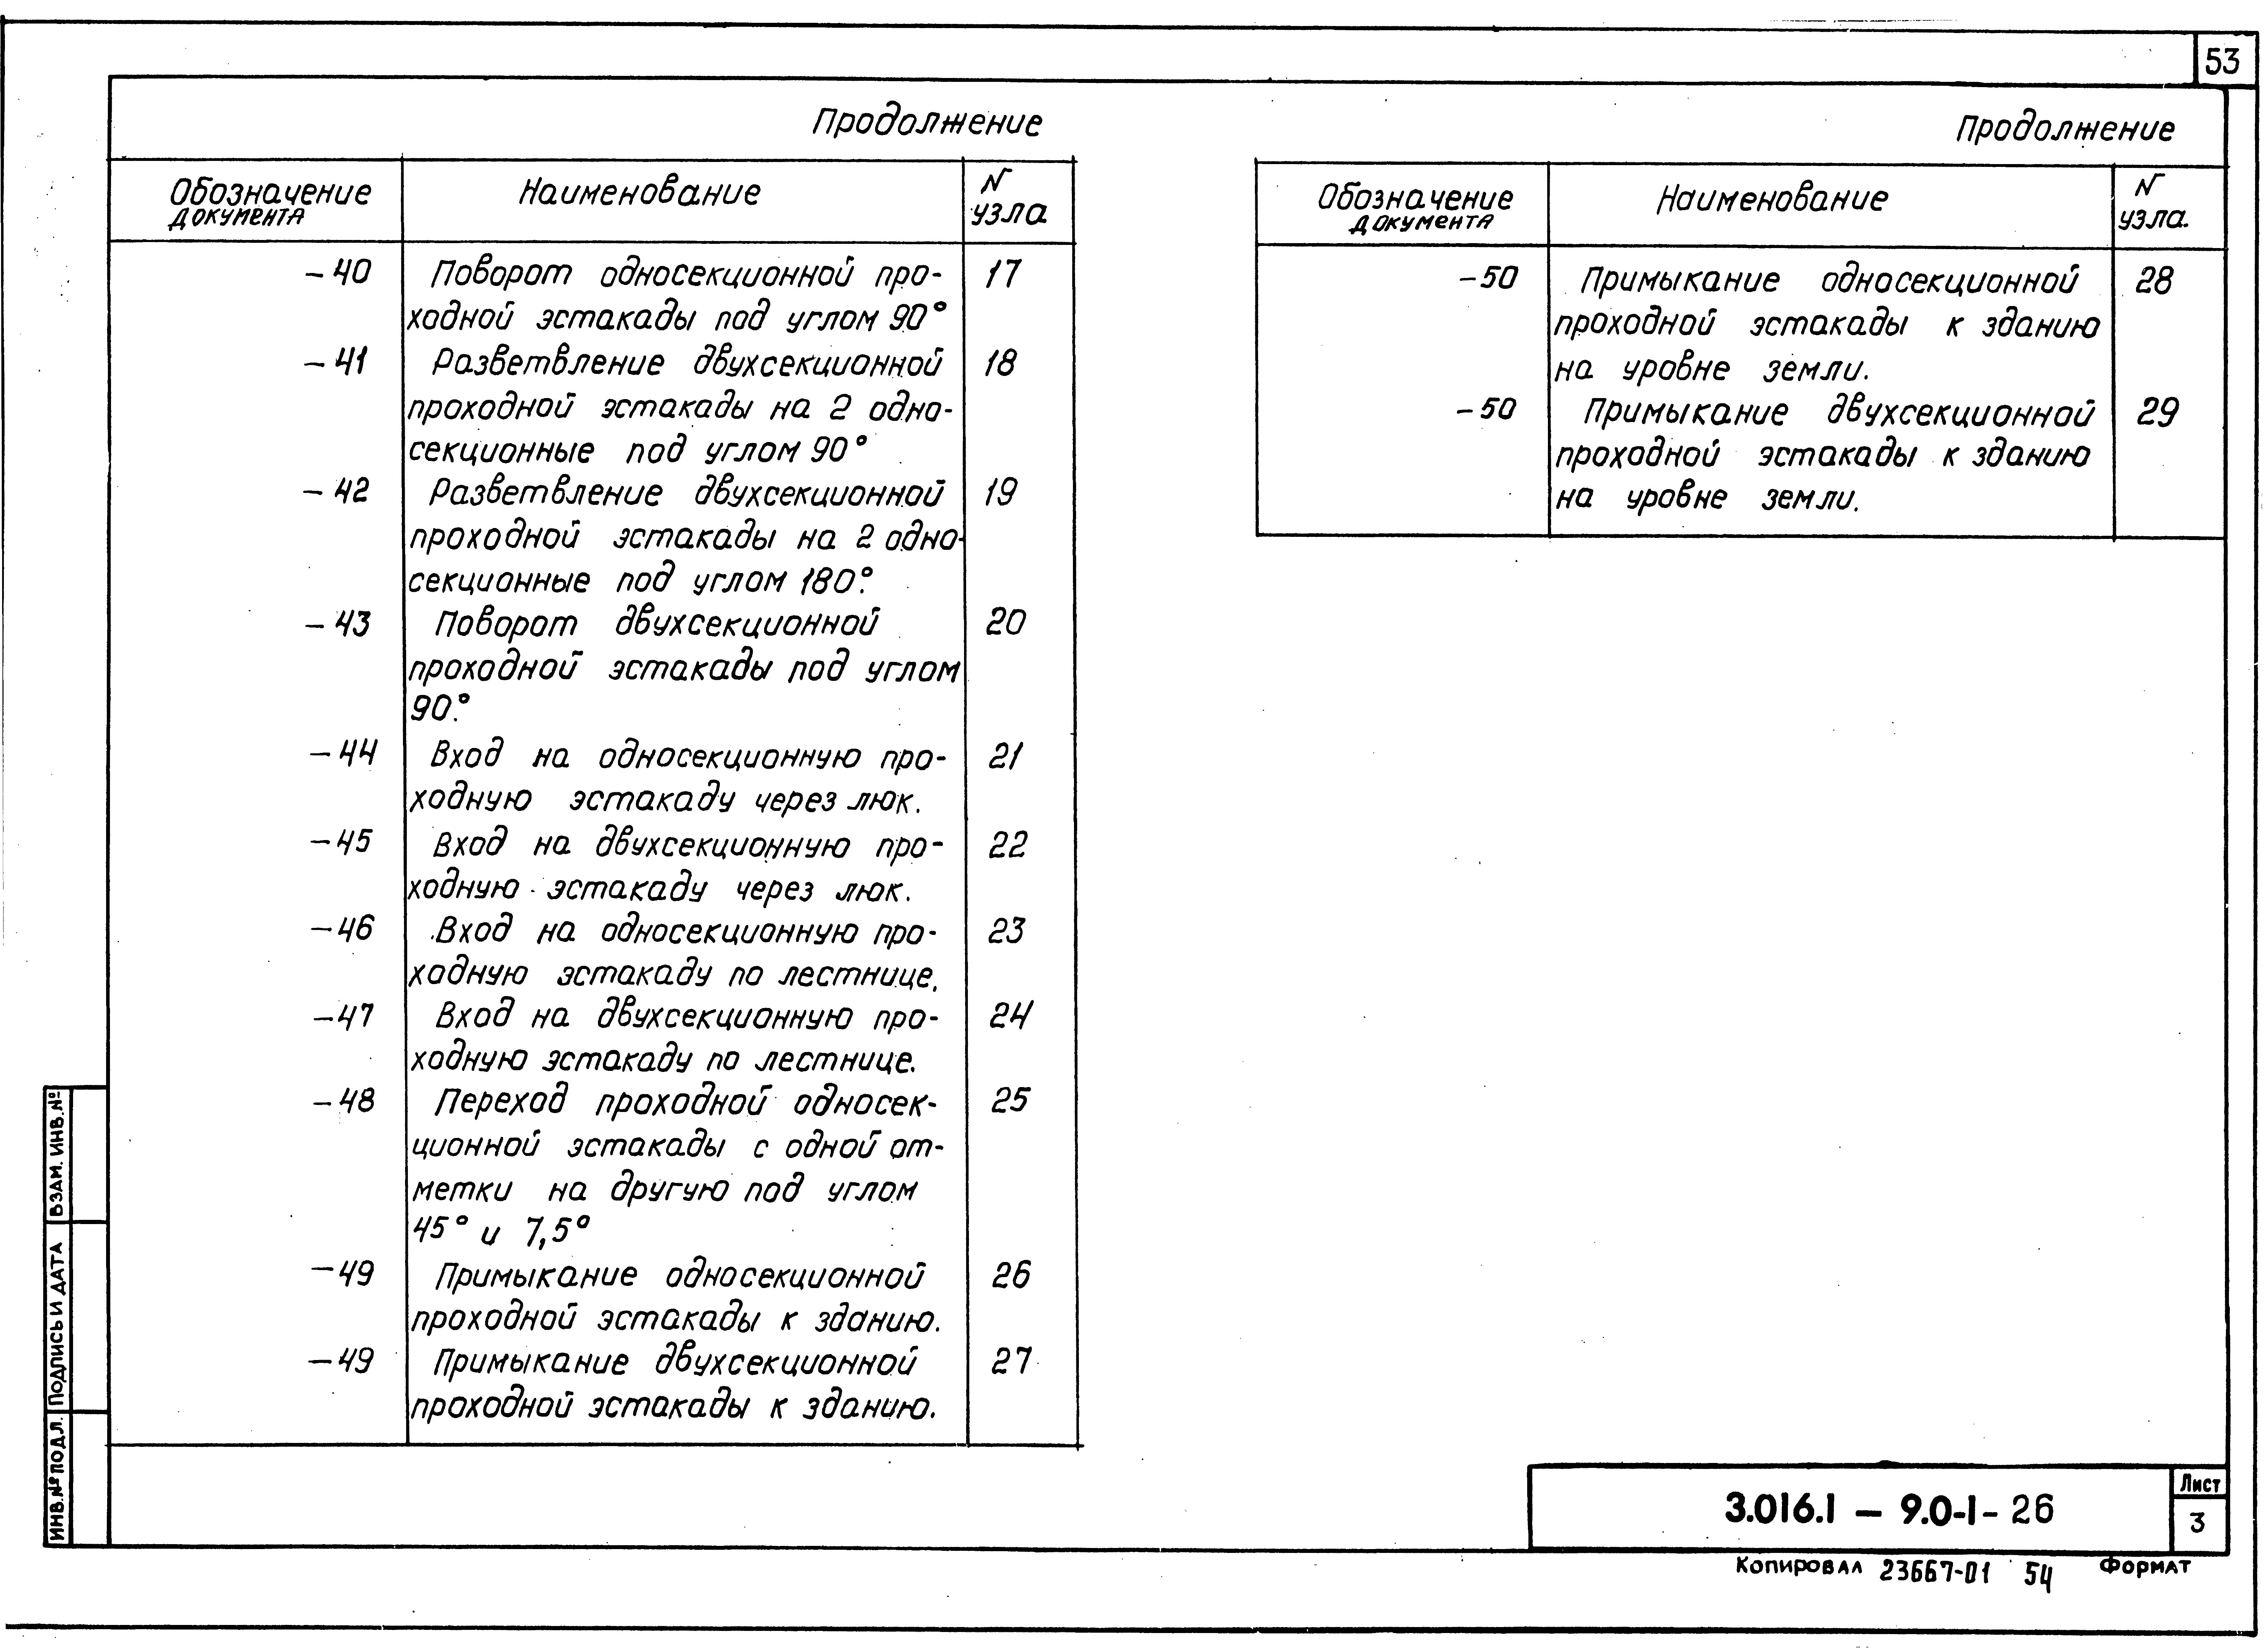 53
Продолжение
Обозначение документа Наименование N узла
-40 Поворот односекционной про- 17
ходной эстакады под углом 90°
-41 Разветвление двухсекционной 18
проходной эстакады на 2 одно-
секционные под углом 90°
-42 Разветвление двухсекционной 19
проходной эстакады на 2 одно-
секционные под углом 180°.
-43 Поворот двухсекционной 20
проходной эстакады под углом
90°.
-44 Вход на односекционную про- 21
ходную эстакаду через люк.
-45 Вход на двухсекционную про- 22
ходную эстакаду через люк.
-46 Вход на односекционную про- 23
ходную эстакаду по лестнице.
-47 Вход на двухсекционную про- 24
ходную эстакаду по лестнице.
-48 Переход проходной односек- 25
ционной эстакады с одной от-
метки на другую под углом
45° и 7,5°
-49 Примыкание односекционной 26
проходной эстакады к зданию.
-49 Примыкание двухсекционной 27
проходной эстакады к зданию.
Продолжение
Обозначение документа Наименование N узла.
-50 Примыкание односекционной 28
проходной эстакады к зданию
на уровне земли.
-50 Примыкание двухсекционной 29
проходной эстакады к зданию
на уровне земли.
ВЗАМ. ИНВ. №
ПОДПИСЬ И ДАТА
ИНВ. № ПОДЛ.
3.016.1 – 9.0-1-26
Лист
3
Копировал 23667-01 54 Формат